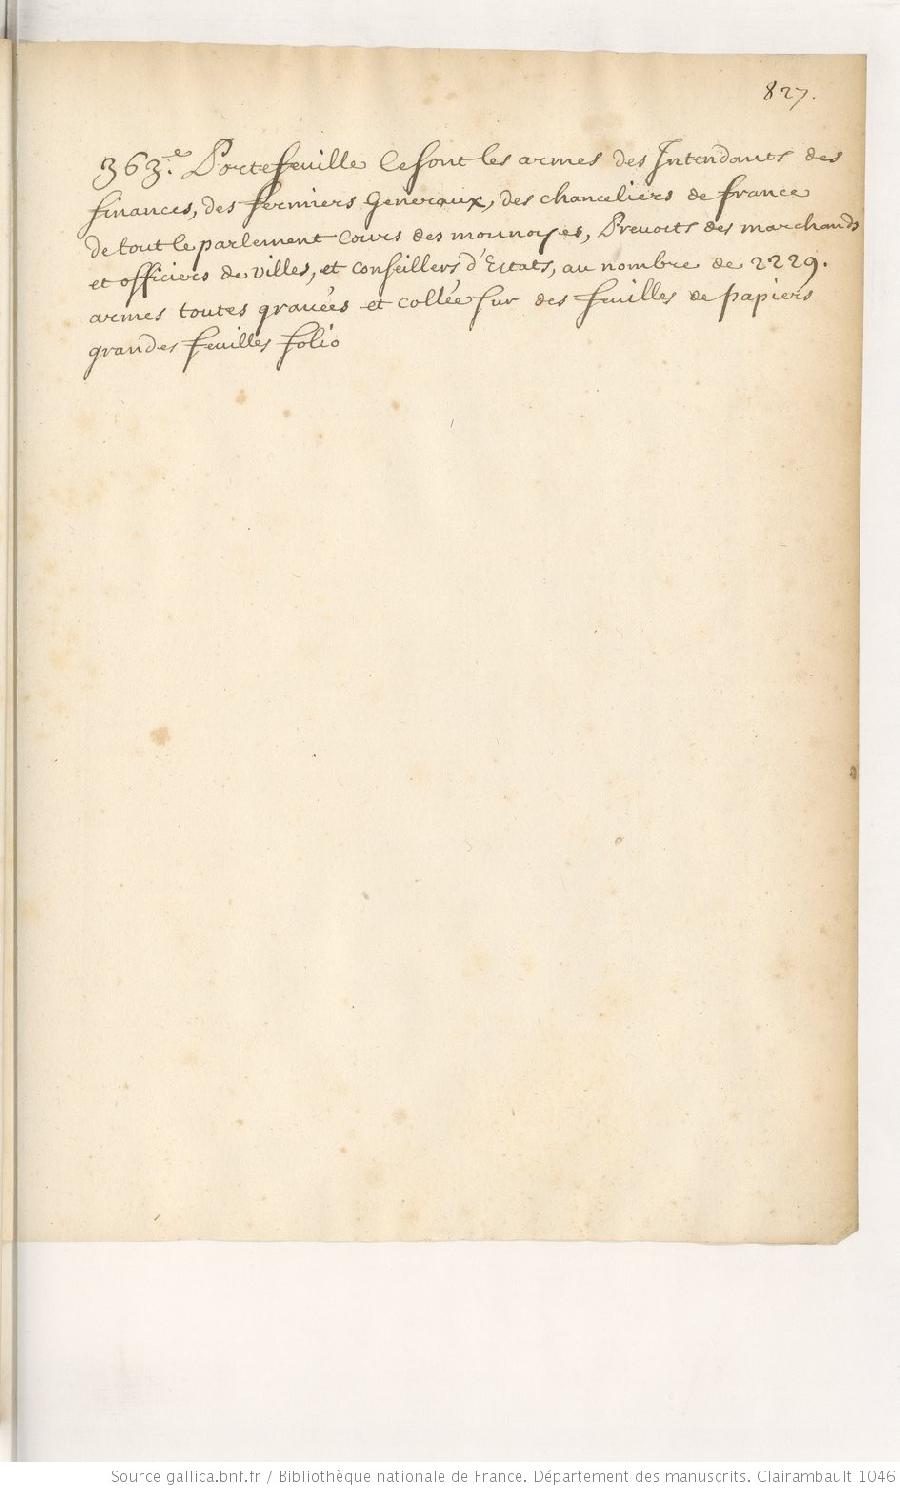 827.
363.e Portefeuille Ce sont les armes des Intendants des
finances, des fermiers Generaux, des chanceliers de france
de tout le parlement Cours des monnoyes, Prevosts des marchands
et officiers de villes, et Conseillers d'Estats, au nombre de 2229.
armes toutes gravées et collée sur des feuilles de papiers
grandes feuilles folio
Source gallica.bnf.fr / Bibliothèque nationale de France. Département des manuscrits. Clairambault 1046